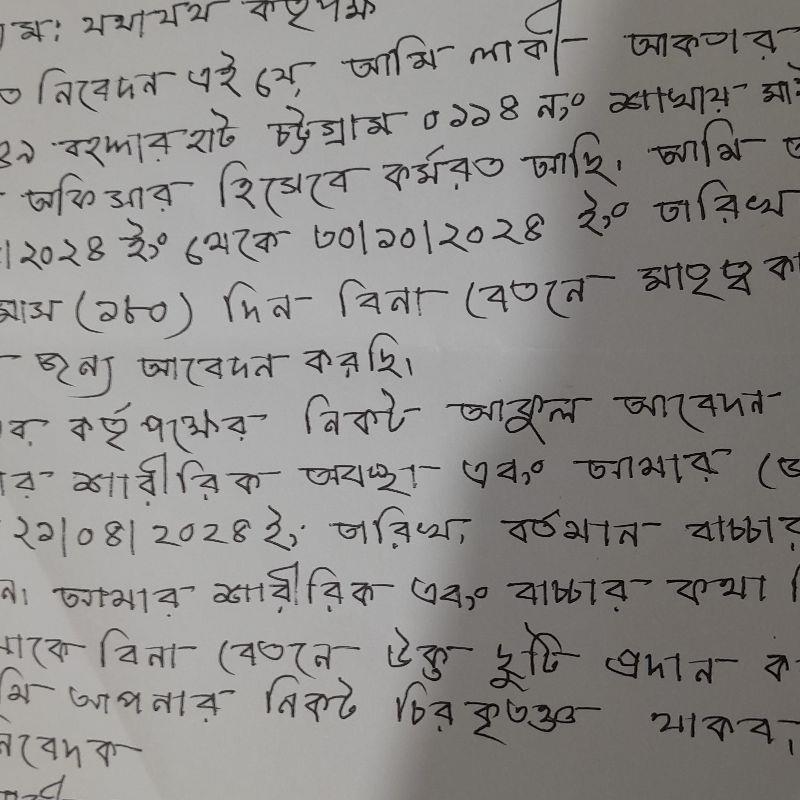 যথাযথ কর্তৃপক্ষ
নিবেদন এই যে, আমি লাকী আকতার
বহদ্দারহাট চট্টগ্রাম ০১১৪ নং শাখায়
অফিসার হিসেবে কর্মরত আছি। আমি
২০২৪ ইং থেকে ৩০/১০/২০২৪ ইং তারিখ
মাস (১৮০) দিন বিনা বেতনে মাতৃত্ব
জন্য আবেদন করছি।
কর্তৃপক্ষের নিকট আকুল আবেদন
শারীরিক অবস্থা এবং আমার
২১/০৪/২০২৪ ইং তারিখ, বর্তমান বাচ্চার
আমার শারীরিক এবং বাচ্চার কথা
বিনা বেতনে উক্ত ছুটি প্রদান
আপনার নিকট চিরকৃতজ্ঞ থাকব।
নিবেদক